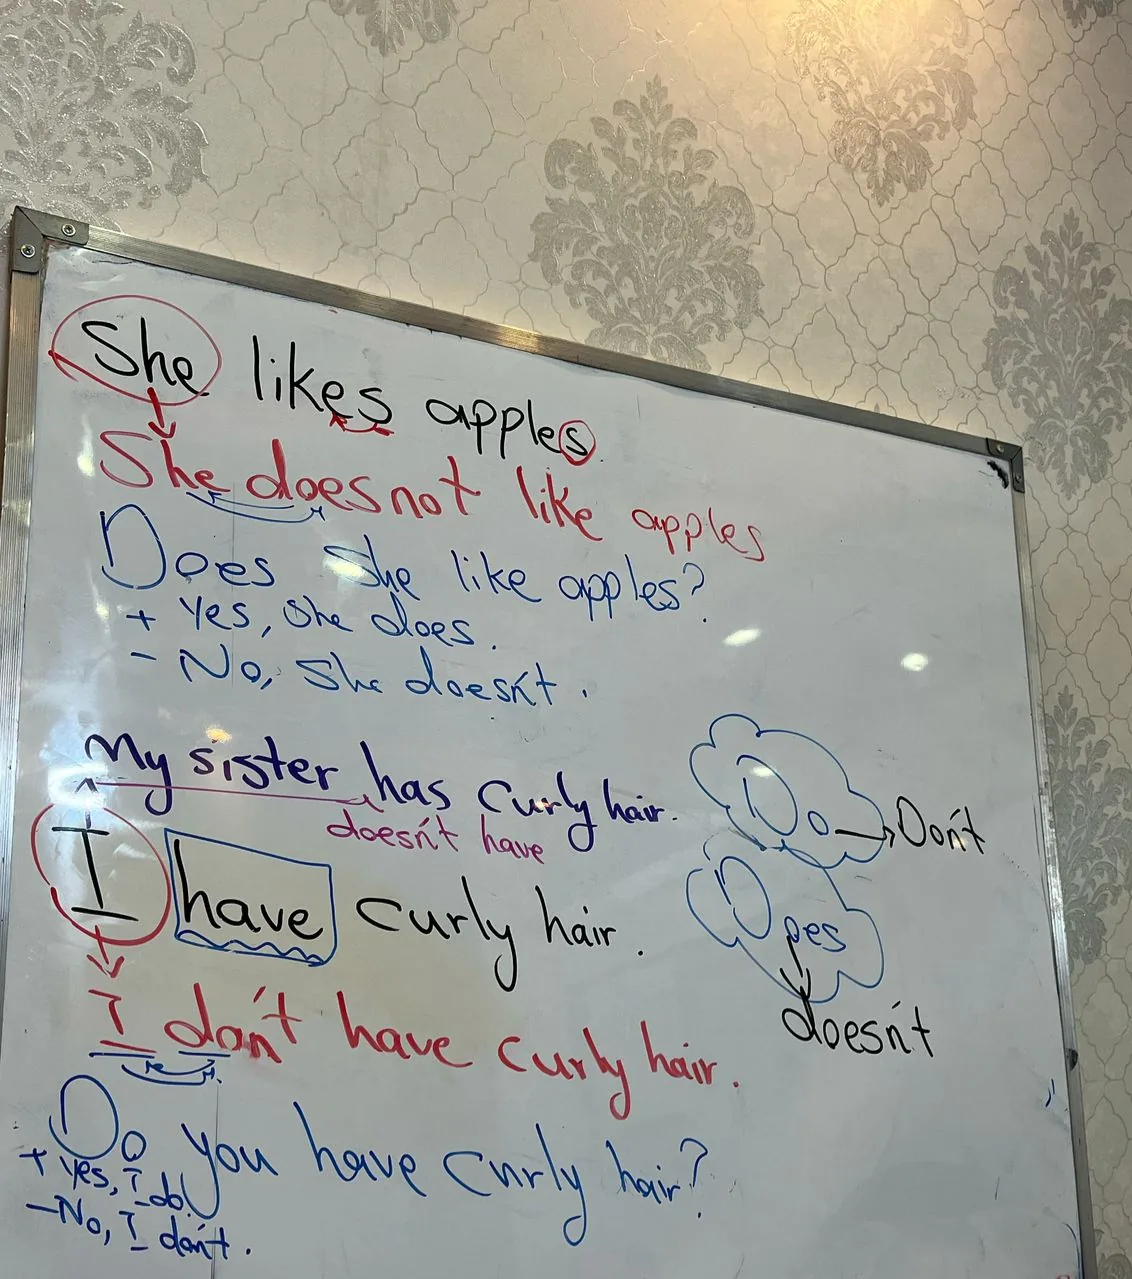 She likes apples.
She does not like apples
Does she like apples?
+ Yes, she does.
- No, she doesn't.
My sister has curly hair.
doesn't have
I have curly hair.
I don't have curly hair.
Do you have curly hair?
+ Yes, I do.
- No, I don't.
Do → Don't
Does
doesn't